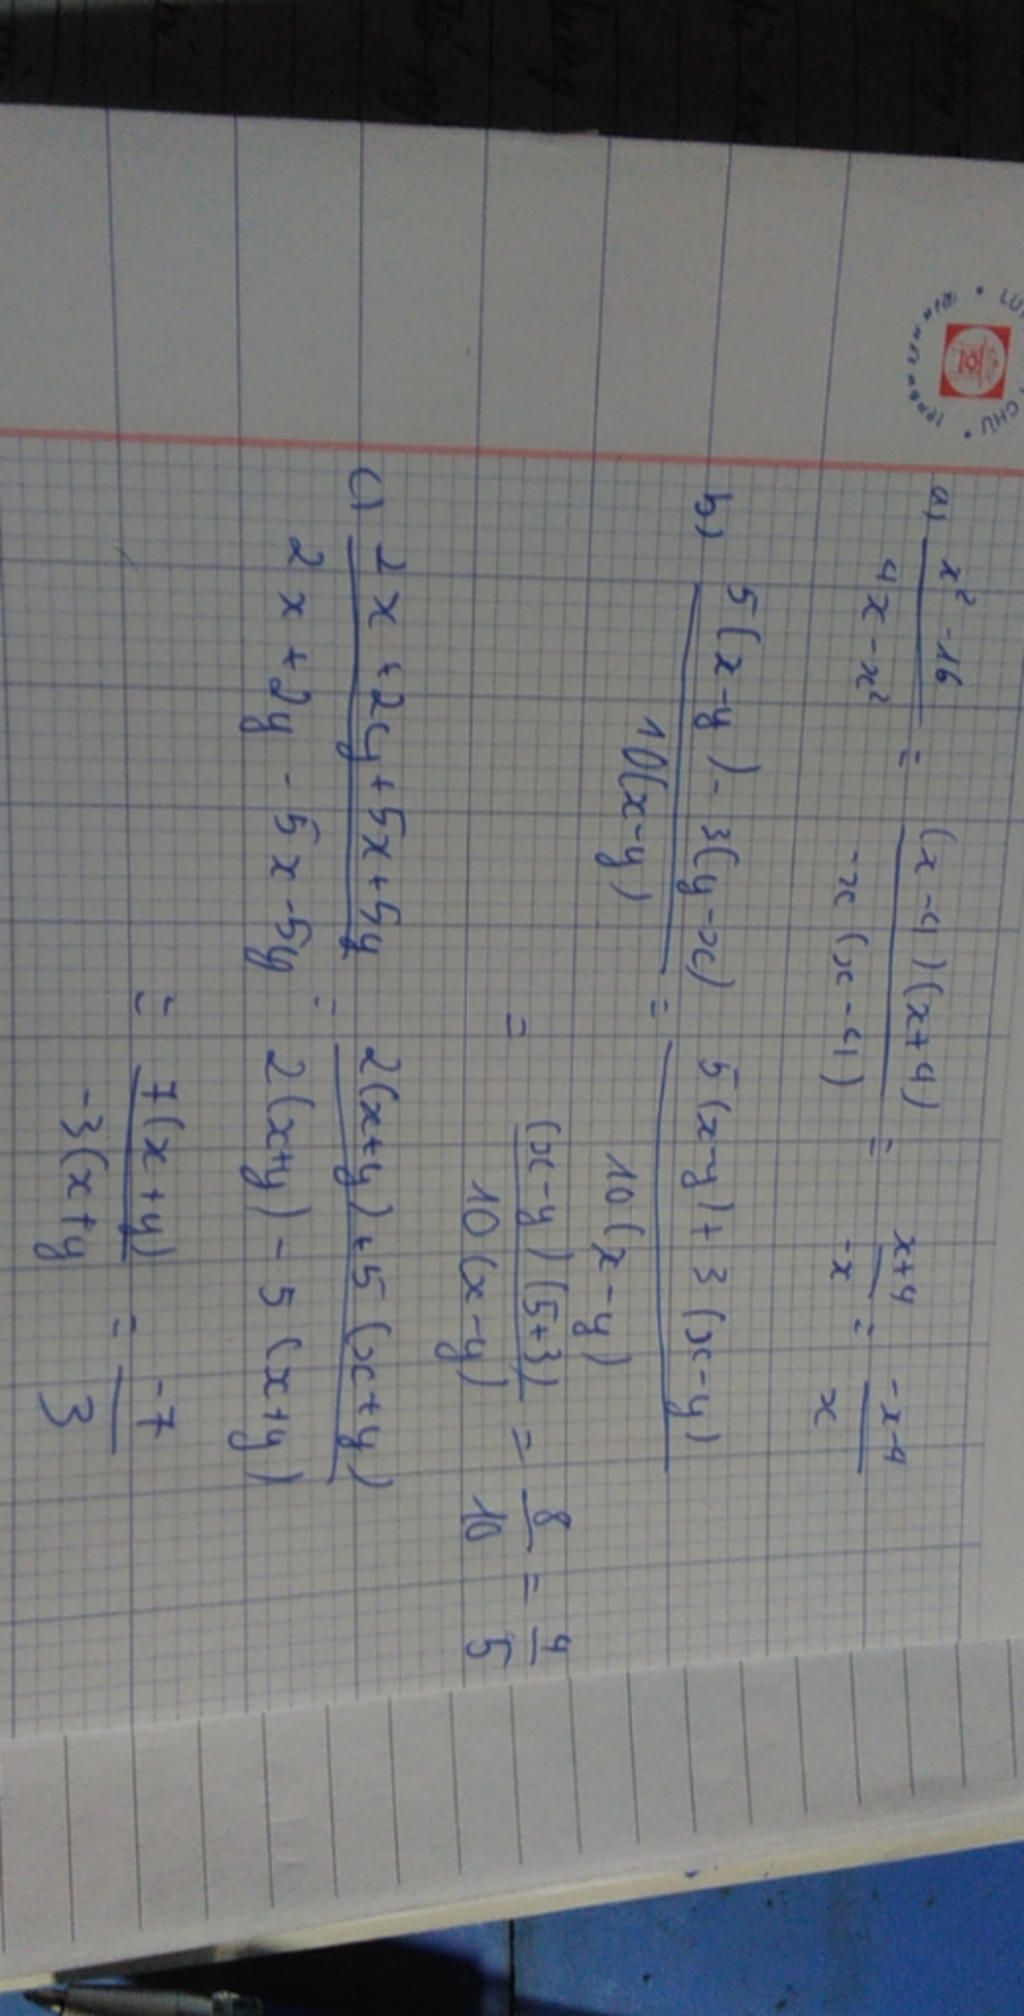 a) x² - 16 / 4x - x² = (x - 4)(x + 4) / -x(x - 4) = x + 4 / -x = -x - 4 / x
b) 5(x - y) - 3(y - x) / 10(x - y) = 5(x - y) + 3(x - y) / 10(x - y)
= (x - y)(5 + 3) / 10(x - y) = 8 / 10 = 4 / 5
c) 2x + 2y + 5x + 5y / 2x + 2y - 5x - 5y = 2(x + y) + 5(x + y) / 2(x + y) - 5(x + y)
= 7(x + y) / -3(x + y = -7 / 3